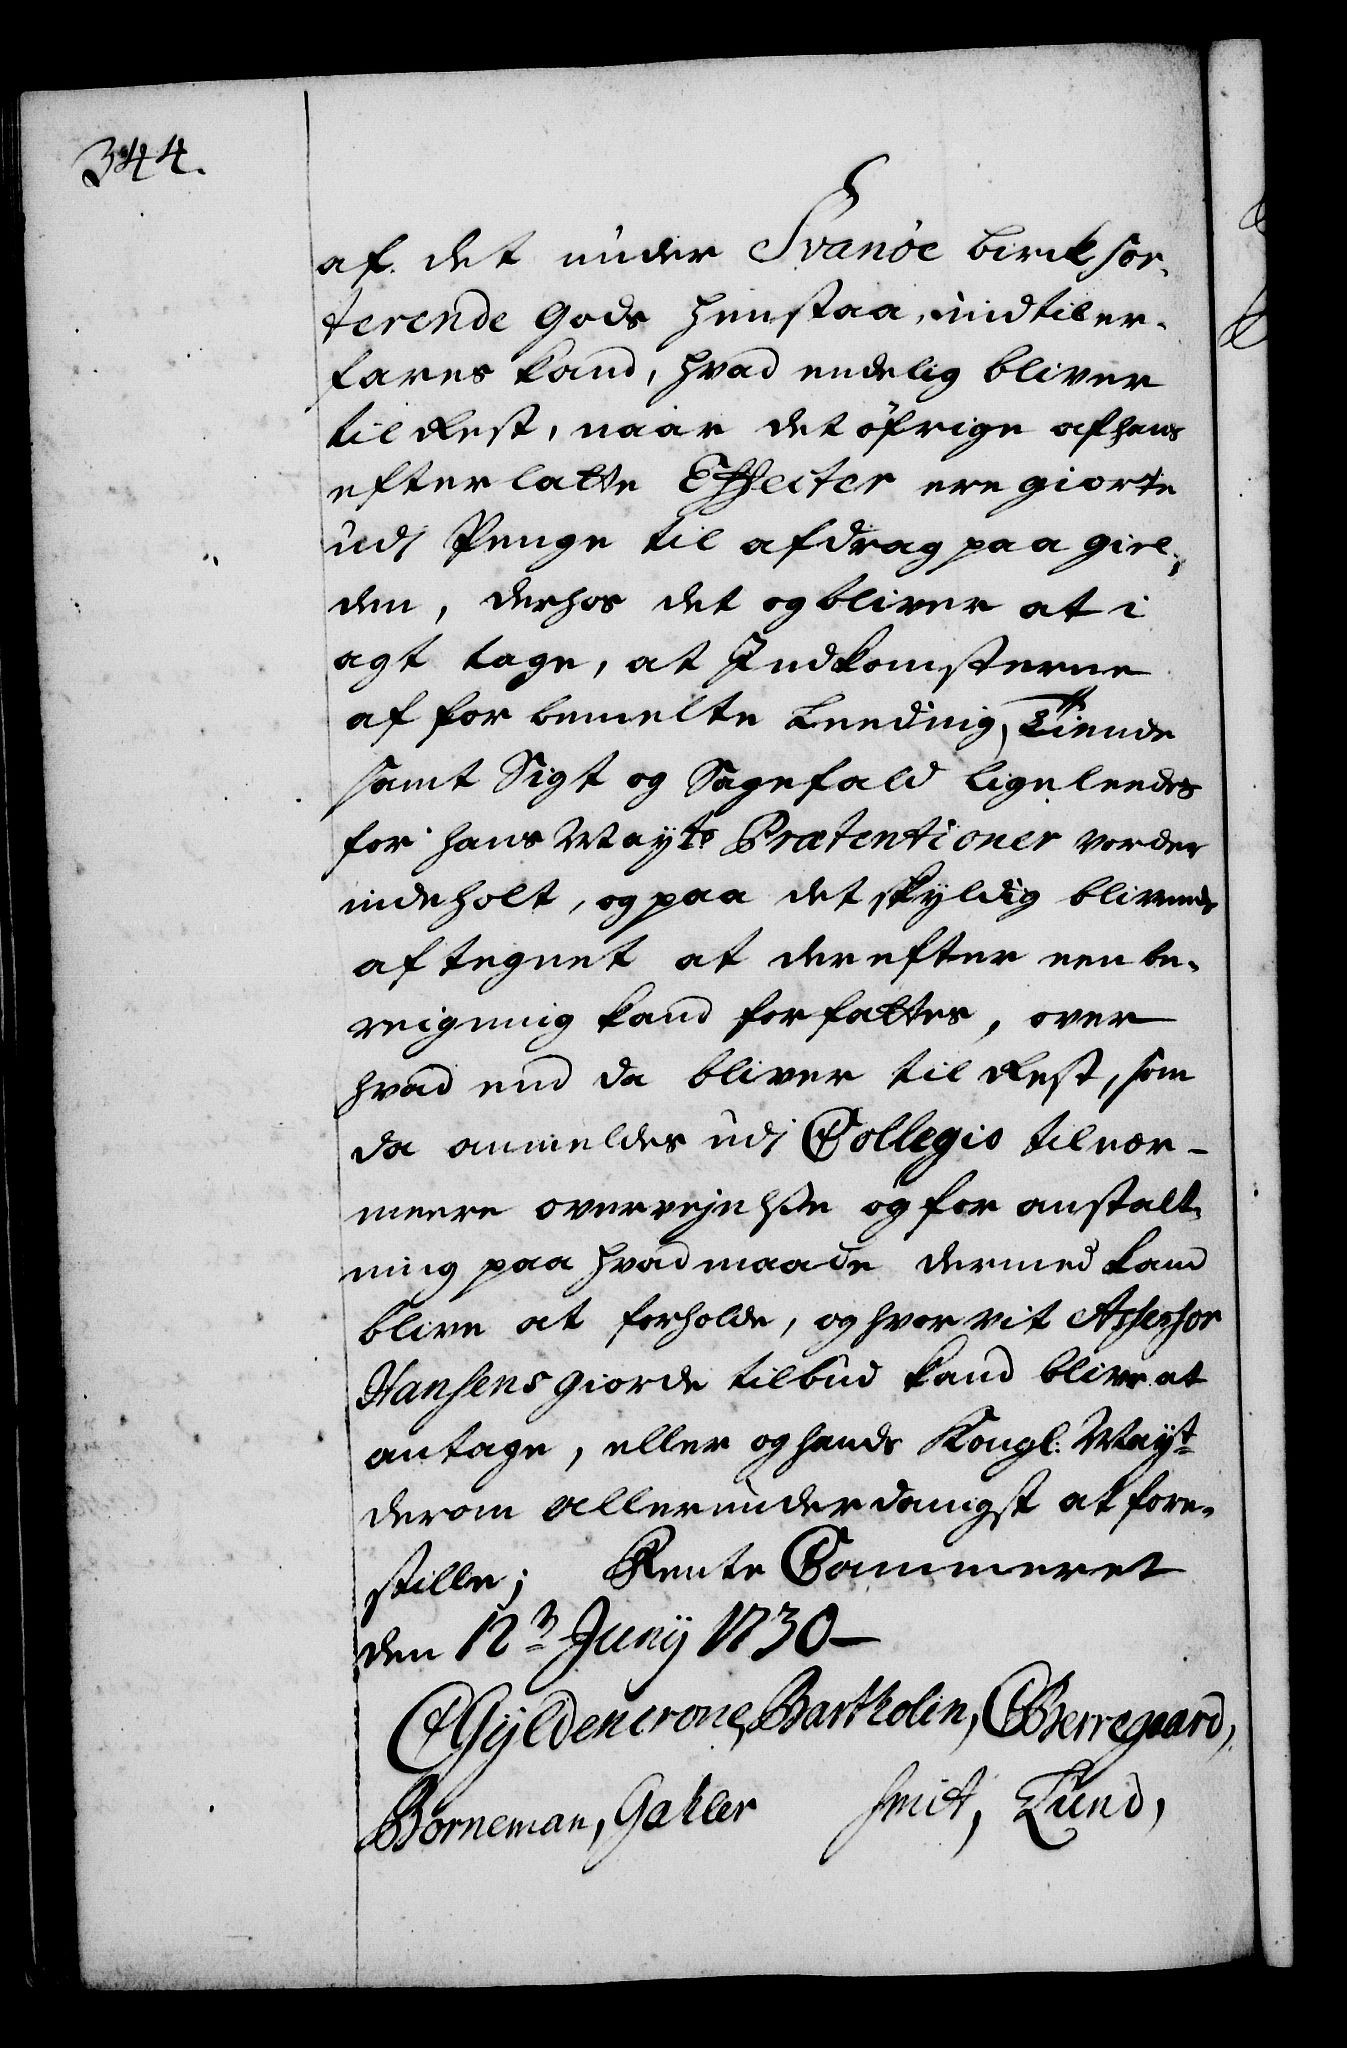 344.
af det under Svanøe birck sor-
terende Gods henstaa, indtil er-
fares kand, hvad endelig bliver
til Rest, naar det øfrige af hans
efterlatte Effecter ere giorte
udj Penge til afdrag paa giel-
den, derhos det og bliver at i
agt tage, at Indkomsterne
af forbemelte Leeding, Tiende
samt Sigt og Sagefald ligeleedes
for hans Mayts Prætentioner vorder
indeholt, og paa det skyldig blivende
aftegnet at derefter een be-
reigning kand forfattes, over
hvad end da bliver til Rest, som
da anmeldes udj Collegio til nær-
meere overvejelse og for anstalt-
ning paa hvad maade dermed kand
blive at forholde, og hvorvit Assessor
Hansens giorde tilbud kand blive at
antage, eller og hands Kongl: Mayt
derom allerunderdanigst at fore-
stille; Rente Cammeret
den 12te Junij 1730 –
C Gyldencrone, Bartholin, C Berregaard,
Borneman, Gahler Smit, Lund,